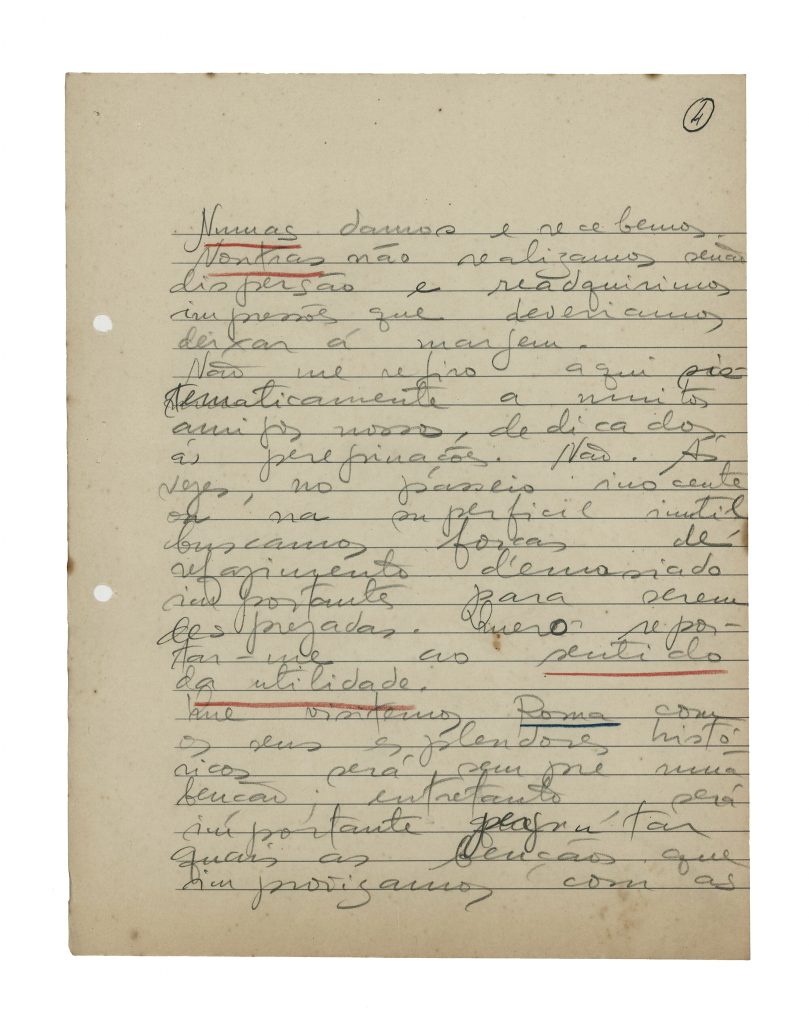 4
Numas damos e recebemos.
Noutras não realizamos senão
dispersão e readquirimos
impressões que deveriamos
deixar á margem.
Não me refiro aqui sis-
tematicamente a muitos
amigos nossos, dedicados
ás peregrinações. Não. Ás
vezes, no passeio inocente
ou na superficie inutil
buscamos forças de
refazimento demasiado
importante para serem
desprezadas. Quero repor-
tar-me ao sentido
da utilidade.
Que visitemos Roma com
os seus esplendores histó-
ricos será sempre numa
bencão; entretanto será
importante perguntar
quais as bençãos que
improvizamos com as